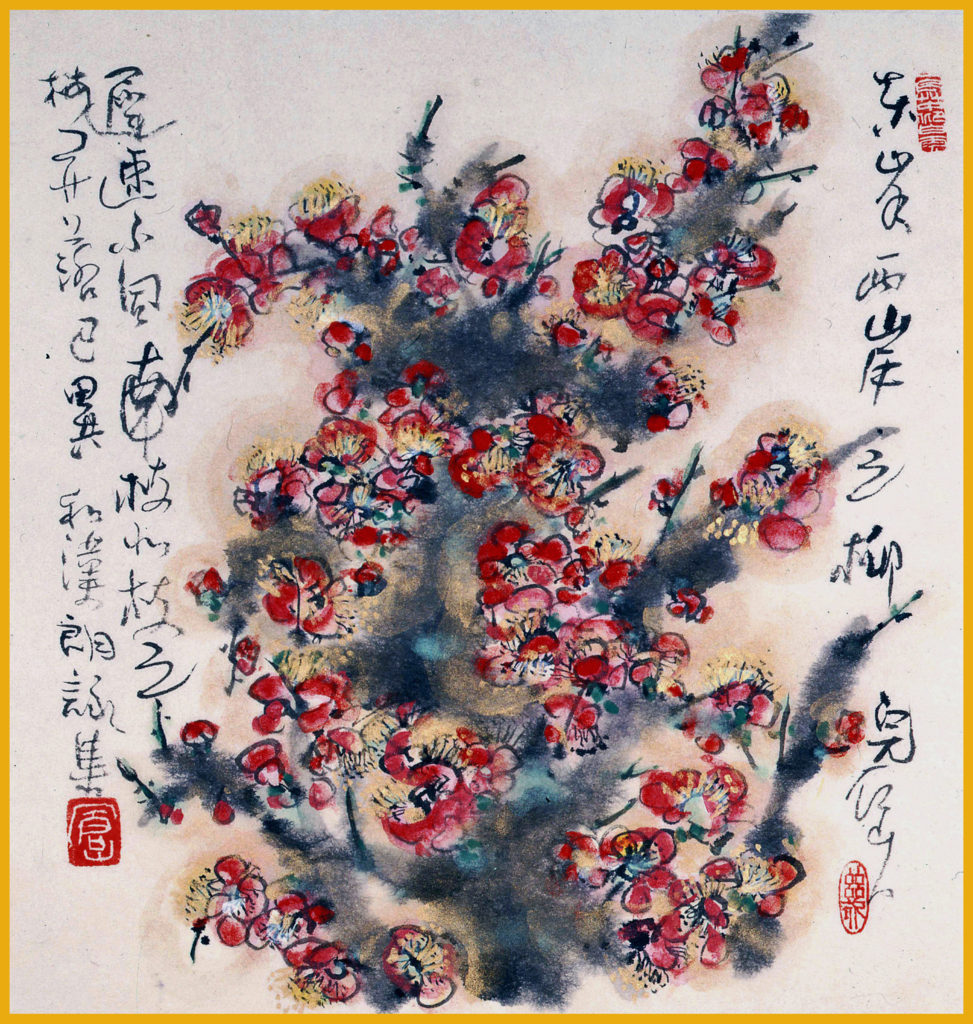 東岸西岸之柳
遲速不同南枝北枝之
梅開落已異 和漢朗詠集